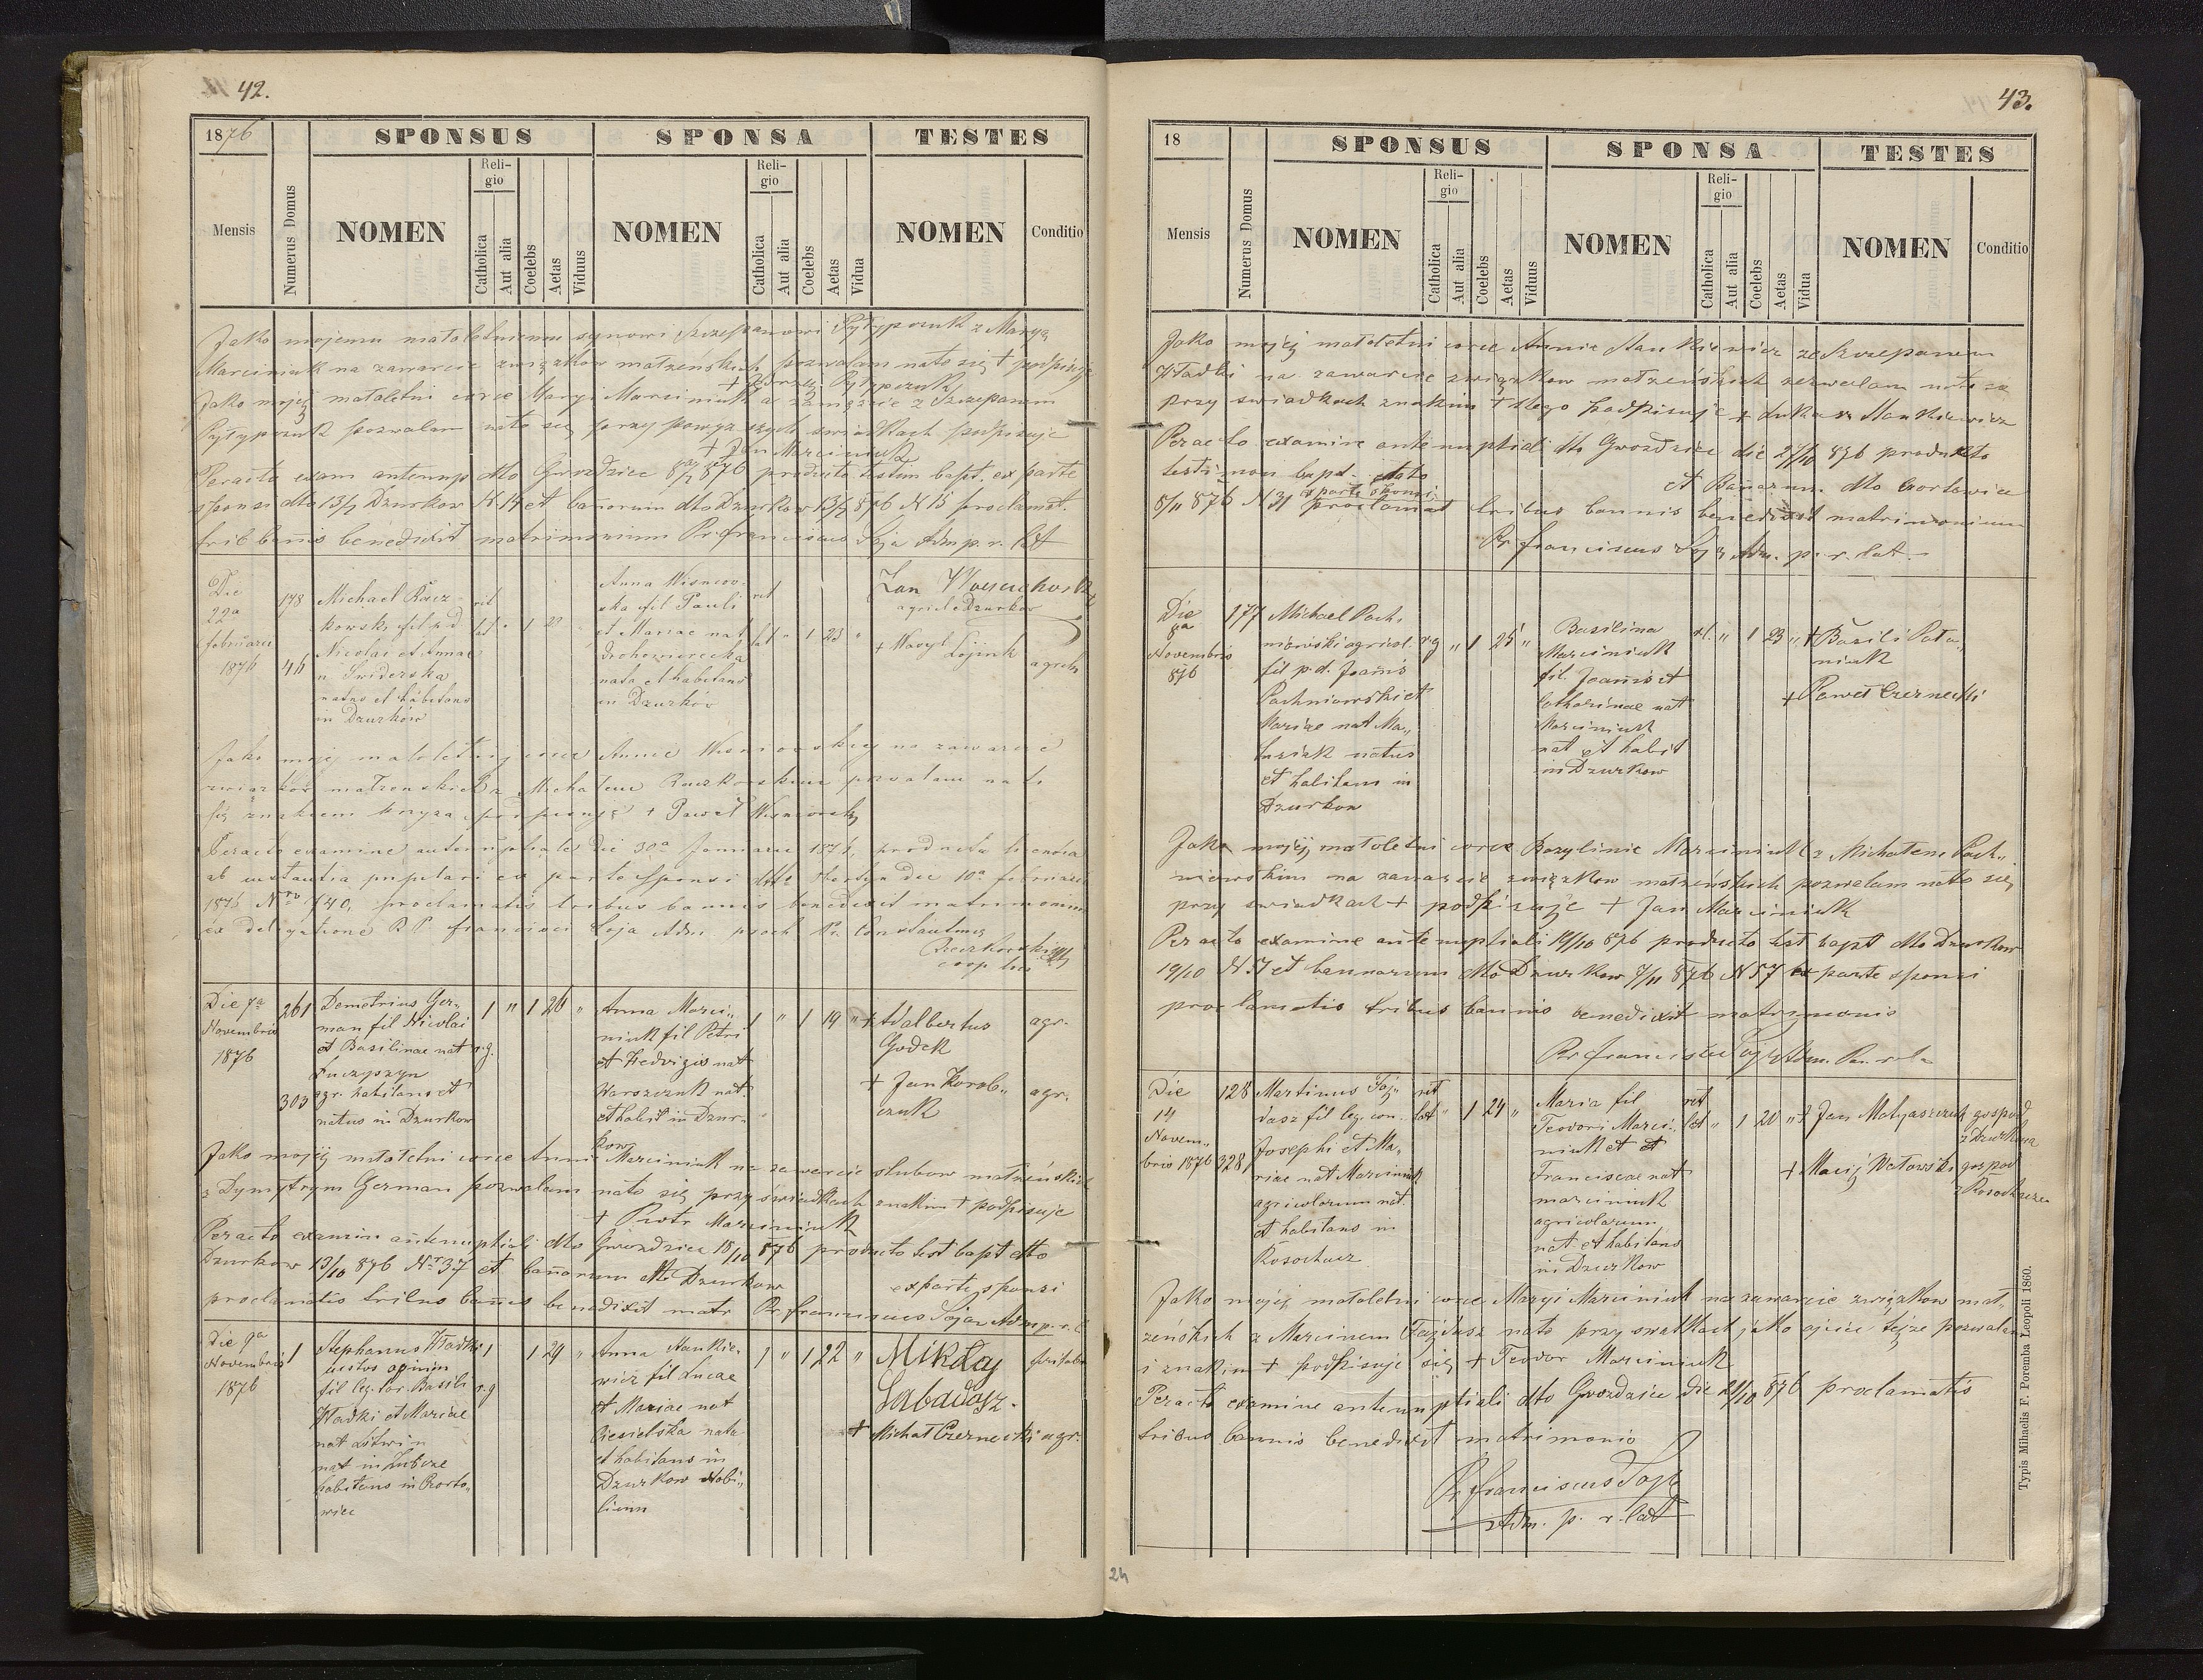 42.
1876
SPONSUS
SPONSA
TESTES
Mensis
Numerus Domus
NOMEN
Religio
Catholica
Aut alia
Coelebs
Aetas
Viduus
NOMEN
Religio
Catholica
Aut alia
Coelebs
Aetas
Vidua
NOMEN
Conditio
Jako mojemu małoletniemu synowi Szczepanowi Pytypczuk z Maryą
Marciniuk na zawarcie związków małżeńskich pozwalam na to się + podpisuję
+ Pytypczuk
Jako mojej małoletni corce Maryi Marciniuk zamęście z Szczepanem
Pytypczuk pozwalam na to się przy powyższych świadkach podpisuje
+ Jan Marciniuk
Peracto exam antenup dto Gwozdziec 8/7 876 producto testim bapt. ex parte
sponsi dto 13/7 Dzurkow N 14 et banorum dto Dzurkow 13/7 876 N 15 proclamat.
trib banis benedixit matrimonium Pr. franciscus Soja Adm p. r. lat
Die
22a
februarii
1876
178
46
Michael Racz
kowski fil p d
Nicolai et Annae
n Swiderska
natus et habitans
in Dzurków
rit
lat " 1 "
Anna Wisniow
ska fil Pauli
et Mariae nat
nata et habitans
in Dzurków
rit
lat " 1 23 "
Jan
agricola Dzurkow
+ Wasyl
agricola
Jako mojej małoletnij corce Annie Wisniowskiej na zawarcie
związków małżeńskich z Michałem Raczkowskim pozwalam na to
się znakiem krzyża podpisuję + Paweł Wisniowski
Peracto examine antenuptiali die 30a Januarii 1876, producta licentia
ab instantia pupilari ex parte Sponsi dtto Obertyn die 10a februarii
1876 Nro 740, proclamatis tribus bannis benedixit matrimonium
ex delegatione R P francisci Soja Adm. paroch Pr. Constantinus
coop loci
Die 7a
Novembris
1876
261
303
Demetrius Ger„
man fil Nicolai
et Basilinae nat
Luczyszyn
agr. habitans et
natus in Dzurkow
1 " 1 26 "
r.g.
Anna Marci„
niuk fil Petri
et Hedvigis nat
Warszczuk nat.
et habit in Dzur„
kow
1 " 1 19 "
+ Adalbertus
Godek
agr.
+ Jan Korob„
czuk
agr.
Jako mojej małoletni corce Anni Marciniuk na zawarcie slubow małżeńskich
z Dymytrym German pozwalam na to się przy świadkach znakim + podpisuje
+ Piotr Marciniuk
Peracto examin antenuptiali dto Gwozdziec 18/10 876 producto test bapt dto
Dzurkow 13/10 876 Nr 37 et banorum dto Dzurkow ex parte sponsi
proclamatis tribus banis benedixit matr Pr. franciscus Soja Adm p. r. l.
Die 9a
Novembris
1876
1
Stephanus Hładki
fil leg. tor. Basili
Hładki et Mariae
nat Litwin
nat in Lubcze
habitans in Czorto„
wiec
1 1 29 "
r.g
Anna Mankie„
wicz fil Lucae
et Mariae nat
Ciesielska nata
et habitans in
Dzurkow Nobi„
lium
1 " 1 22 "
Mikłaj
Sabadasz.
+ Michał Czernecki agr.
43.
18
SPONSUS
SPONSA
TESTES
Mensis
Numerus Domus
NOMEN
Religio
Catholica
Aut alia
Coelebs
Aetas
Viduus
NOMEN
Religio
Catholica
Aut alia
Coelebs
Aetas
Vidua
NOMEN
Conditio
Jako mojej małoletni corce Annie Mankiewicz ze Szczepanem
Hładki na zawarcie związkow małżeńskich zezwalam na to się
przy swiadkach znakim + tłego podpisuje + Lukasz Mankiewicz
Peracto examine antenuptiali dto Gwozdziec die 27/10 876 produkto
testimon bapt. dto et Banorum dto Czortowiec
8/11 876 N 31 ex parte sponsi proclamat tribus bannis benedixit matrimonium
Pr franciscus Soja Adm. p. r. lat.
Die
8a
Novembris
876
177
Michael Pach„
niowski agricol.
fil p. d. Joanis
Pachniowski et
Mariae nat Ma„
tusiak natus
et habitans in
Dzurkow
r.g " 1 25 "
Basilina
Marciniuk
fil. Joanis et
Catharinae nat
Marciniuk
nat et habit
in Dzurkow
r.l. " 1 23 "
+ Basili Pata„
niuk
+ Paweł Czernecki
Jako mojej małoletni corce Bazylinie Marciniuk z Michałem Pach„
niowskim na zawarcie związkow małżeńskich pozwalam na to się
przy swiadkach + podpisuje + Jan Marciniuk
Peracto examine antenuptiali 19/10 876 producto test bapt dto Dzurkow
19/10 N 57 et bannorum dto Dzurkow 7/11 876 N 57 ex parte sponsi
proclamatis tribus bannis benedixit matrymonio
Pr franciscus Soja Adm. Par. r. l.
Die
14
Novem„
bris 1876
128
328
Martinus Faj„
dasz fil leg. con.
Josephi et Ma„
riae nat Marciniuk
agricolarum nat.
et habitans in
Rosochacz
rit
lat " 1 24 "
Maria fil
Teodori Marci„
niuk et
Franciscae nat
marciniuk
agricolarum
nat et habitans
in Dzurkow
rit
lat " 1 20 "
+ Jan Matyaszczuk gospod
z Dzurkowa
+ Maciej Watowski gospod
z Rosochacza
Jako mojej małoletni corce Maryi Marciniuk na zawarcie związkow mał„
żeńskich z Marcinem Fajdasz na to przy swiatkach jako ojciec tejże pozwalam
i znakim + podpisuje się + Teodor Marciniuk
Peracto examine antenuptiali dto Gwozdziec die 21/10 876 proclamatis
tribus bannis benedixit matrimonio
Pr. franciscus Soja
Adm. p. r. lat
Typis Mihaelis F. Poremba Leopoli 1860.
24